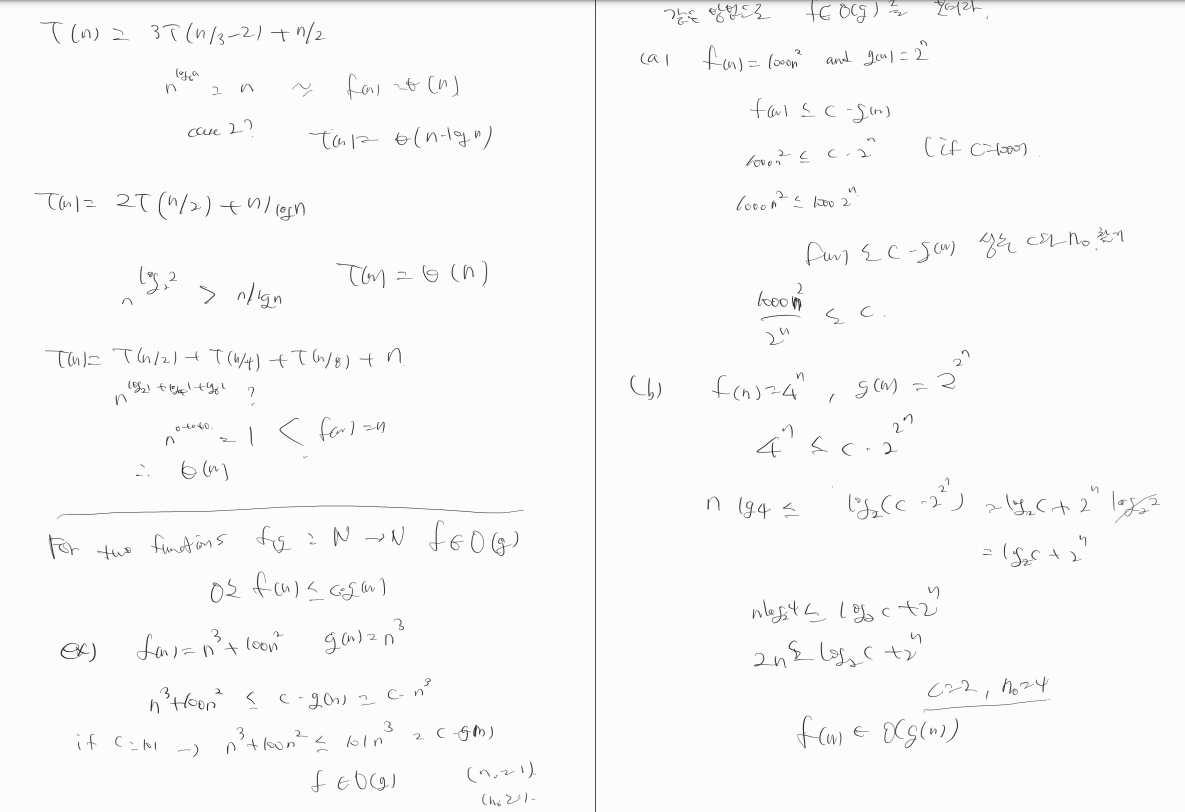 T(n) = 3T(n/3-2) + n/2
n^{log_b a} = n ~ f(n) = θ(n)
case 2? T(n) = θ(n·log n)
T(n) = 2T(n/2) + n/logn
n^{log_2 2} > n/lgn T(n) = θ(n)
T(n) = T(n/2) + T(n/4) + T(n/8) + n
n^{log_2 1 + log_4 1 + log_8 1} ?
n^{0+0+0} = 1 < f(n) = n
∴ θ(n)
For two functions f,g : N → N f ∈ O(g)
0 ≤ f(n) ≤ c·g(n)
ex) f(n) = n³ + 100n² g(n) = n³
n³+100n² ≤ c·g(n) = c·n³
if c=101 → n³+100n² ≤ 101n³ = c·g(n)
f ∈ O(g) (n₀=1)
(n₀≥1)
같은 방법으로 f ∈ O(g)를 보여라.
(a) f(n) = 1000n² and g(n) = 2ⁿ
f(n) ≤ c·g(n)
1000n² ≤ c·2ⁿ (if c=1000)
1000n² ≤ 1000 2ⁿ
f(n) ≤ c·g(n) 상수 c와 n₀ 찾기
1000n²/2ⁿ ≤ c.
(b) f(n) = 4ⁿ, g(n) = 2^{2ⁿ}
4ⁿ ≤ c·2^{2ⁿ}
n lg4 ≤ log₂(c·2^{2ⁿ}) = log₂c + 2ⁿ log₂2
= log₂c + 2ⁿ
nlog₂4 ≤ log₂c + 2ⁿ
2n ≤ log₂c + 2ⁿ
c=2, n₀=4
f(n) ∈ O(g(n))